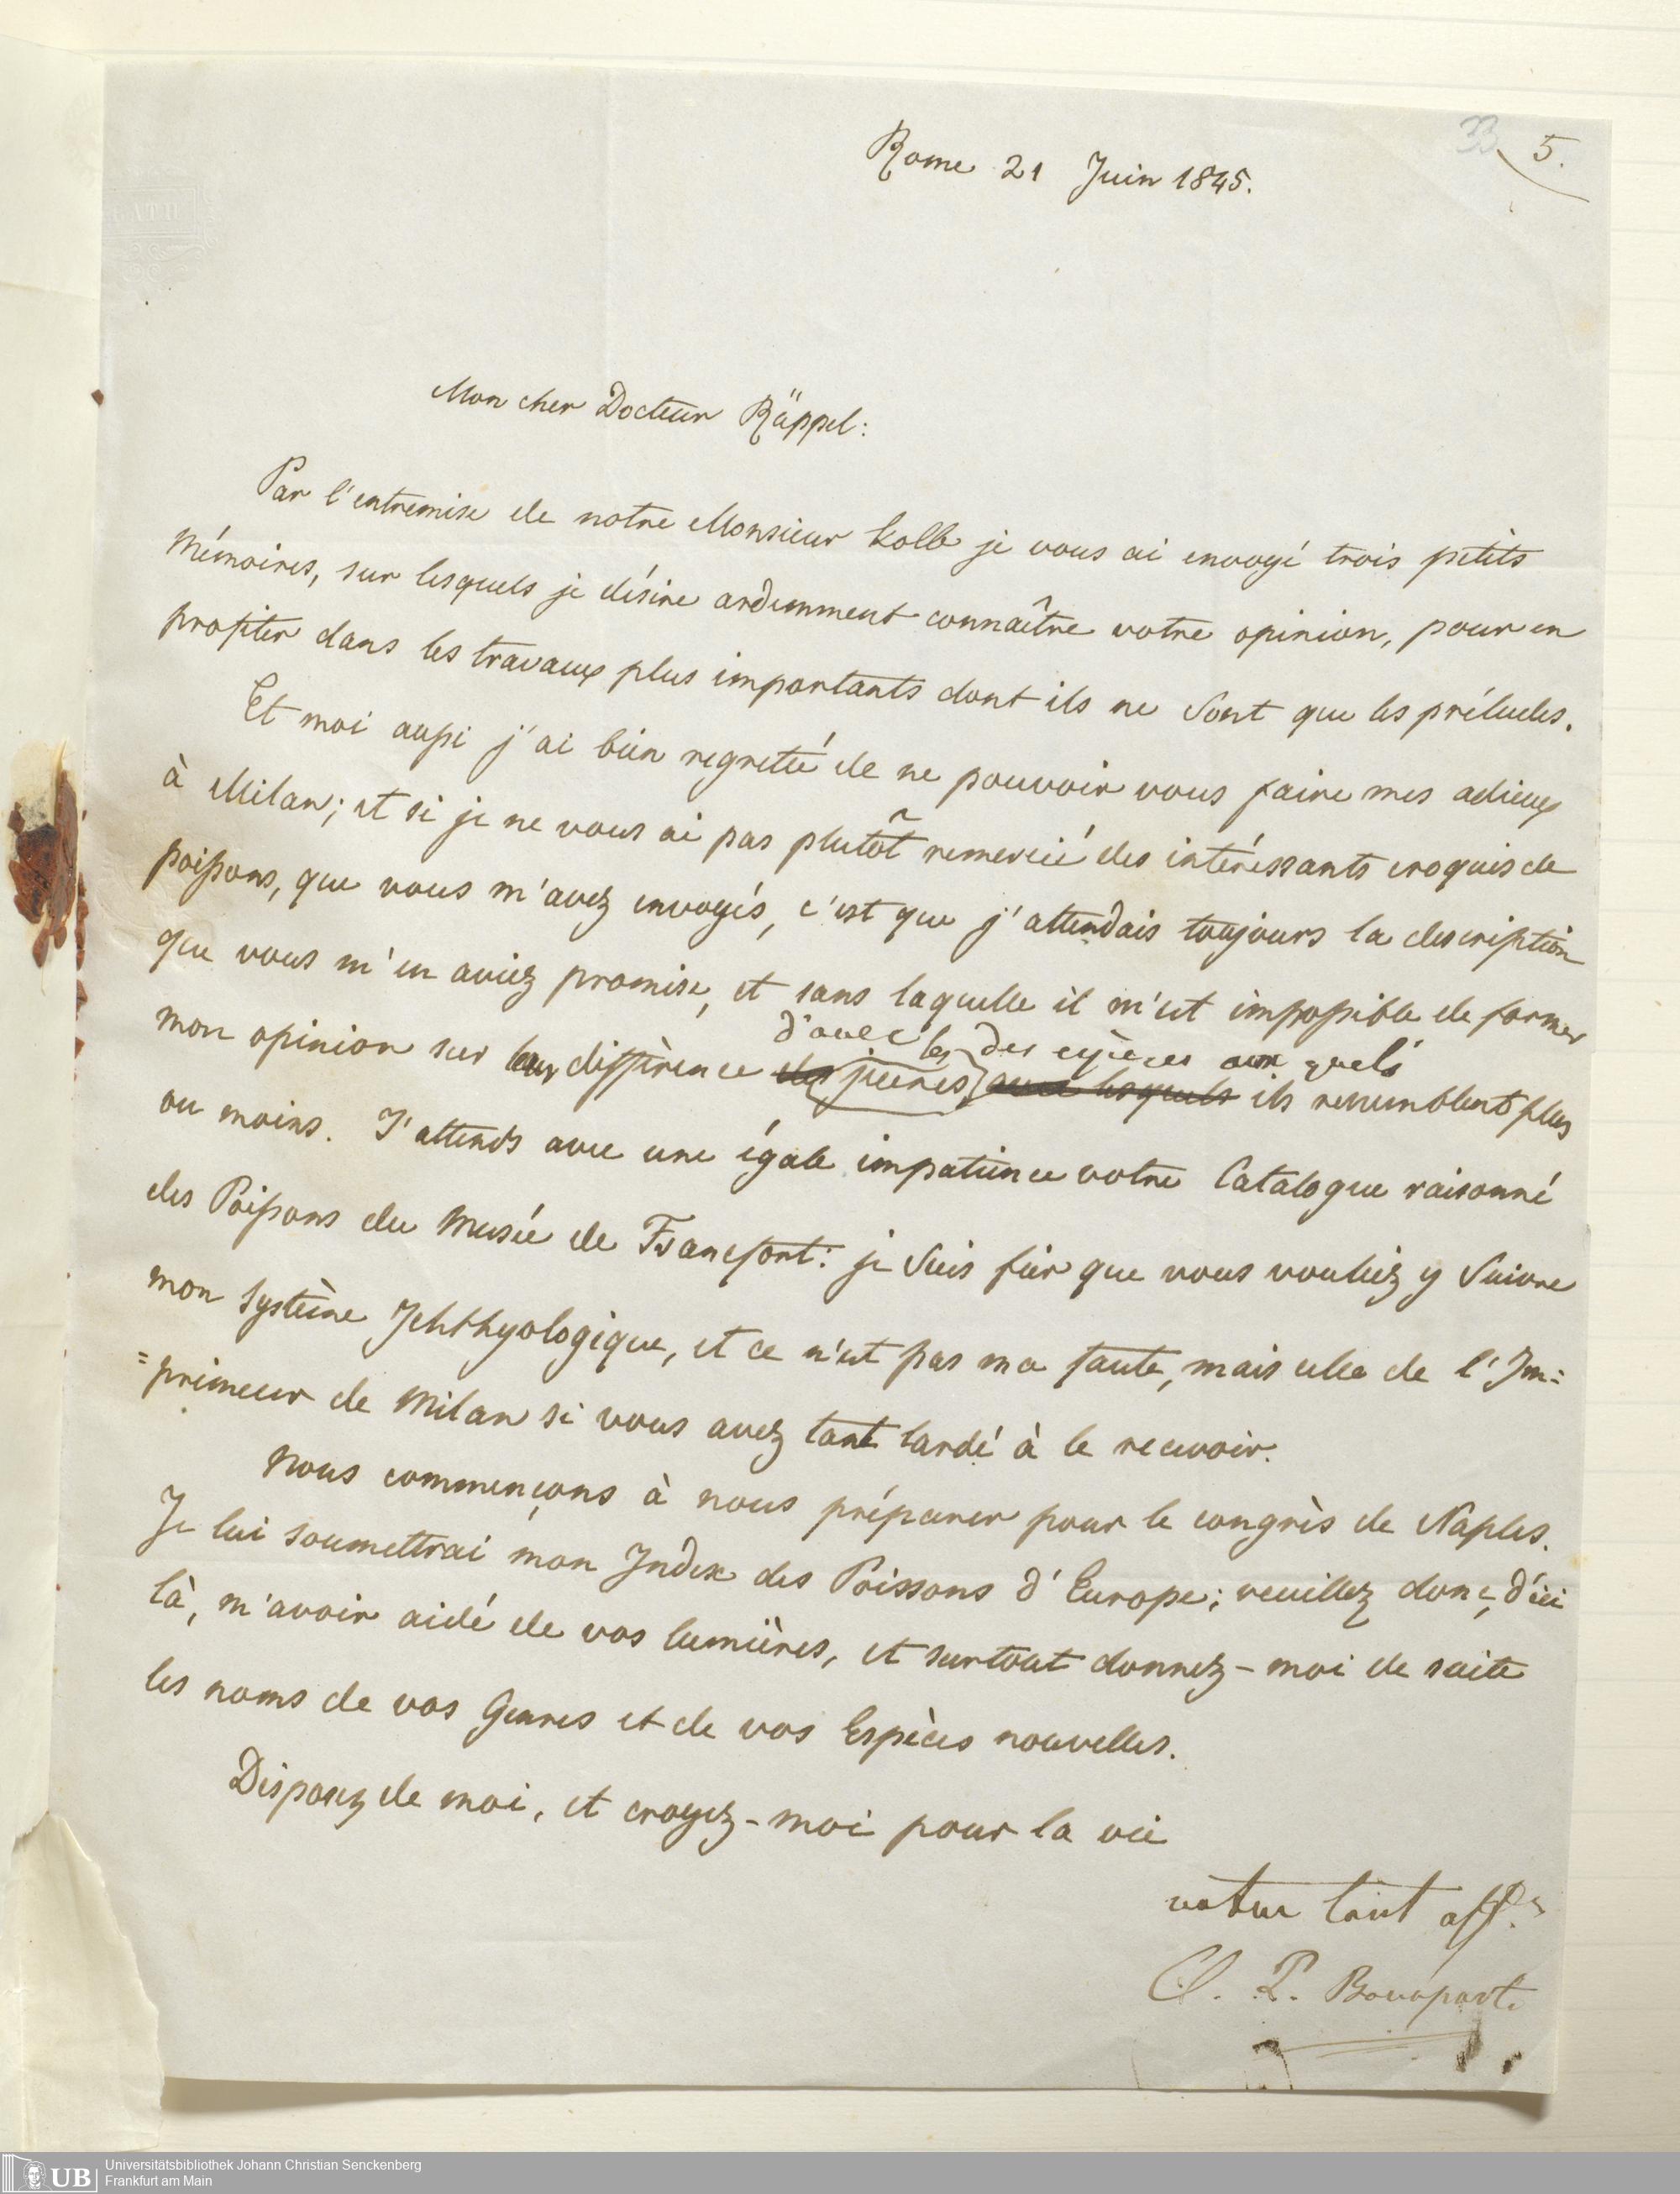 33 5.
Rome 21 Juin 1845.
Mon cher Docteur Rüppel:
Par l'entremise de notre Monsieur Kolb je vous ai envoyé trois petits
Mémoires, sur lesquels je désire ardemment connaître votre opinion, pour en
profiter dans les travaux plus importants dont ils ne sont que les préludes.
Et moi aussi j'ai bien regretté de ne pouvoir vous faire mes adieux
à Milan; et si je ne vous ai pas plutôt remercié des intéressants croquis de
poissons, que vous m'avez envoyés, c'est que j'attendais toujours la description
que vous m'en aviez promise, et sans laquelle il m'est impossible de former
d'avec les des espèces aux quels
mon opinion sur leur différence des avec lesquels ils ressemblent plus
ou moins. J'attends avec une égale impatience votre Catalogue raisonné
des Poissons du Musée de Francfort: je suis fier que vous vouliez y suivre
mon Système Ichthyologique, et ce n'est pas ma faute, mais celle de l'Im=
=primeur de Milan si vous avez tant tardé à le recevoir.
Nous commençons à nous préparer pour le congrès de Naples.
Je lui soumettrai mon Index des Poissons d'Europe; veuillez donc, d'ici
là, m'avoir aidé de vos lumières, et surtout donnez-moi de suite
les noms de vos Genres et de vos Espèces nouvelles.
Disposez de moi, et croyez-moi pour la vie
votre tout aff.
C. L. Bonaparte
UB
Universitätsbibliothek Johann Christian Senckenberg
Frankfurt am Main